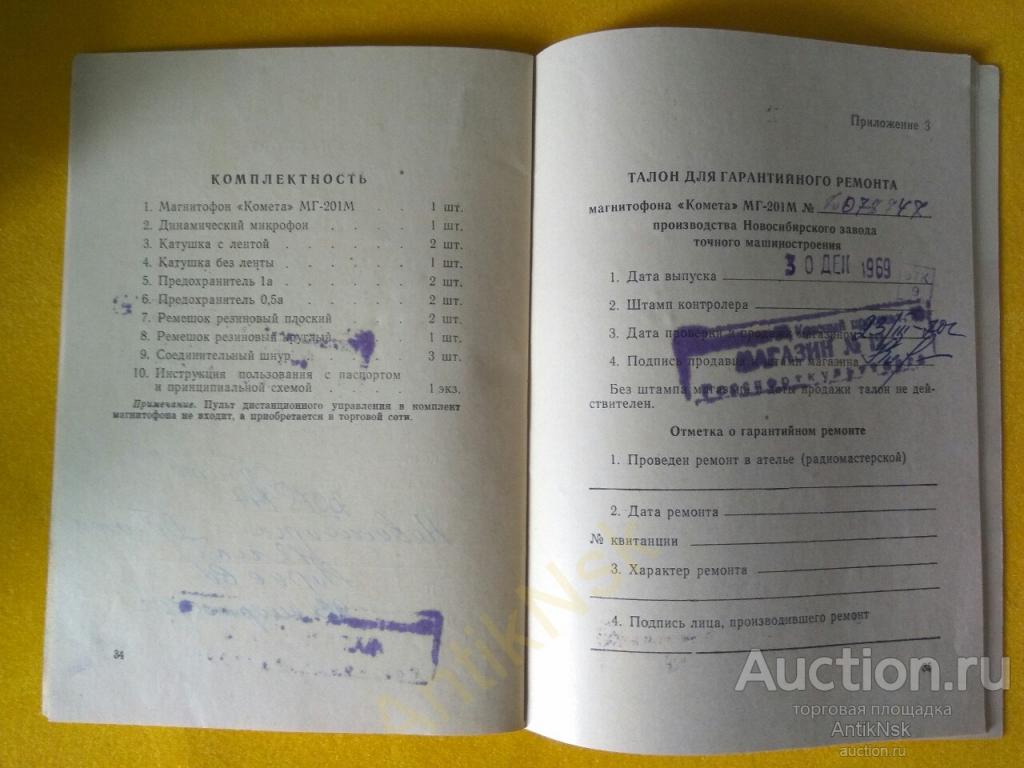 КОМПЛЕКТНОСТЬ
1. Магнитофон «Комета» МГ-201М . . 1 шт.
2. Динамический микрофон . . . . 1 шт.
3. Катушка с лентой . . . . . 2 шт.
4. Катушка без ленты . . . . . 1 шт.
5. Предохранитель 1а . . . . . 2 шт.
6. Предохранитель 0,5а . . . . . 2 шт.
7. Ремешок резиновый плоский . . . 2 шт.
8. Ремешок резиновый круглый . . . 1 шт.
9. Соединительный шнур . . . . . 3 шт.
10. Инструкция пользования с паспортом
и принципиальной схемой . . . . 1 экз.
Примечание. Пульт дистанционного управления в комплект
магнитофона не входит, а приобретается в торговой сети.
34
Приложение 3
ТАЛОН ДЛЯ ГАРАНТИЙНОГО РЕМОНТА
магнитофона «Комета» МГ-201М №
производства Новосибирского завода
точного машиностроения
1. Дата выпуска 30 ДЕК 1969
2. Штамп контролера
3. Дата проверки и продажи магазином
4. Подпись продавца магазина
МАГАЗИН №
Без штампа магазина и даты продажи талон не дей-
ствителен.
Отметка о гарантийном ремонте
1. Проведен ремонт в ателье (радиомастерской)
2. Дата ремонта
№ квитанции
3. Характер ремонта
4. Подпись лица, производившего ремонт
AntikNsk
Auction.ru
торговая площадка
AntikNsk
auction.ru